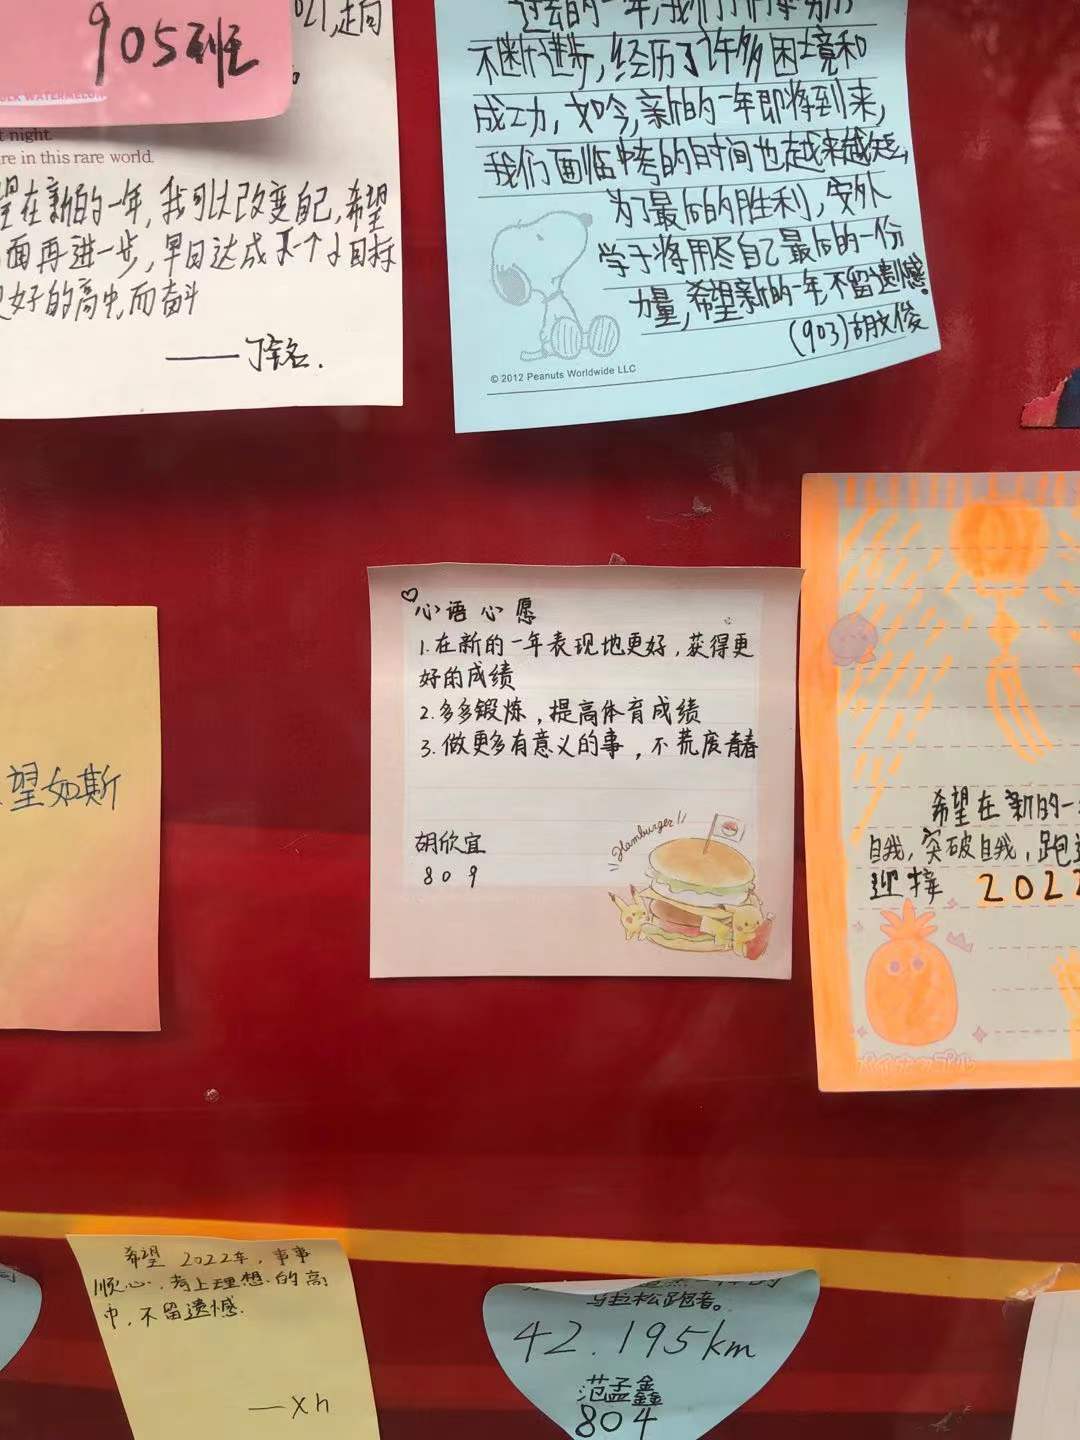 905班
021,走向
t night.
re in this rare world.
望在新的一年,我可以改变自己,希望
面再进一步,早日达成某一个小目标
好的高中,而奋斗
——丁铭.
不断进步,经历了许多困境和
成功,如今,新的一年即将到来,
我们面临中考的时间也越来越短,
为了最后的胜利,安外
学子将用尽自己最后的一份
力量,希望新的一年不留遗憾。
(903)胡文俊
© 2012 Peanuts Worldwide LLC
望如斯
心语心愿
1.在新的一年表现地更好,获得更
好的成绩
2.多多锻炼,提高体育成绩
3.做更多有意义的事,不荒废青春
胡欣宜
809
Hamburger!!
希望在新的一
自我,突破自我,跑
迎接 2022
パイナップル
希望 2022年,事事
顺心.考上理想的高
中,不留遗憾.
—xh
马拉松跑者。
42.195km
范孟鑫
804